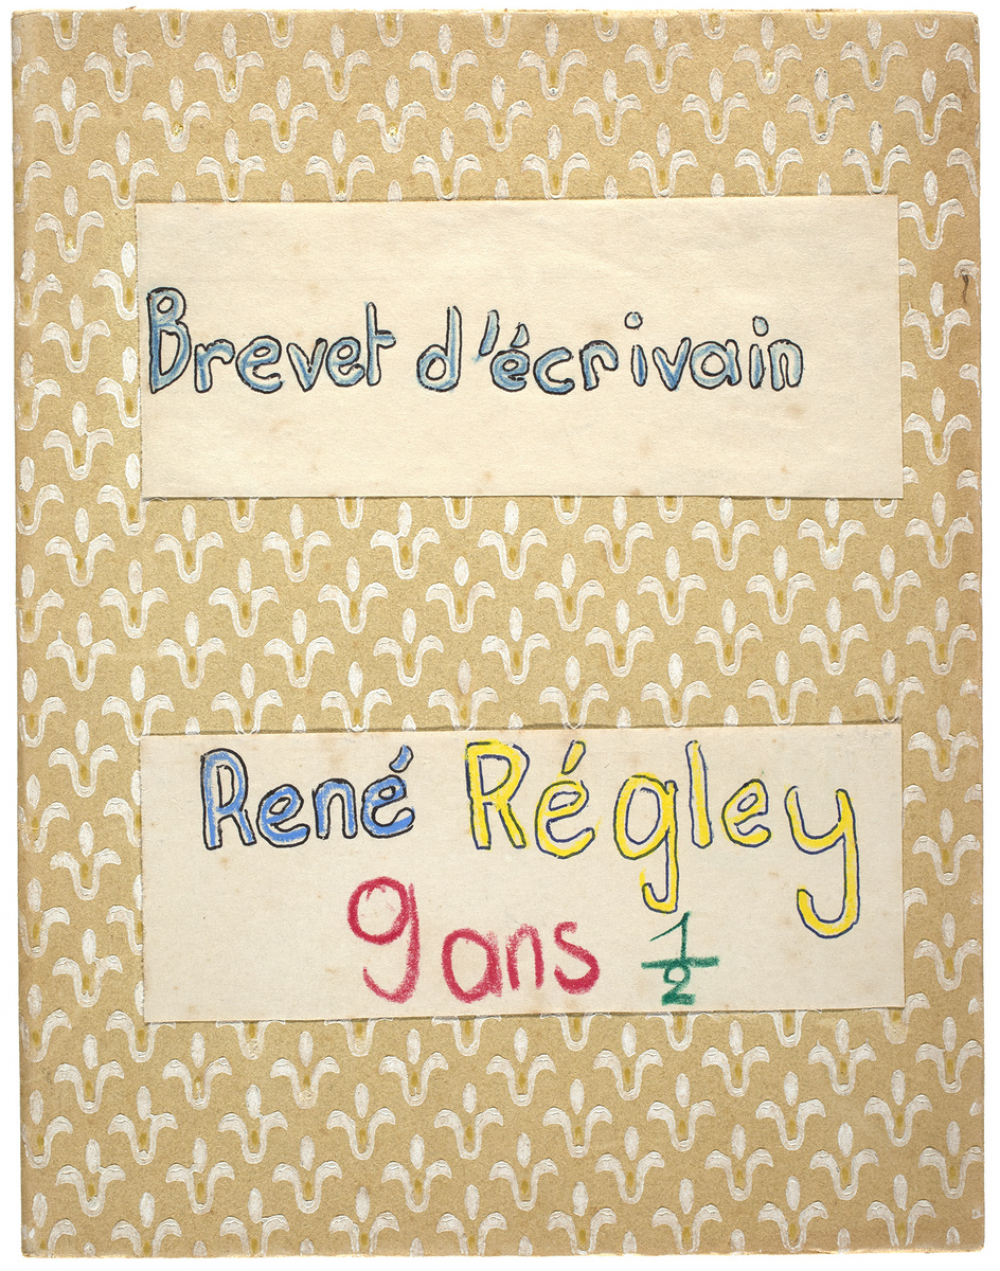 Brevet d'écrivain
René Régley
9 ans 1/2